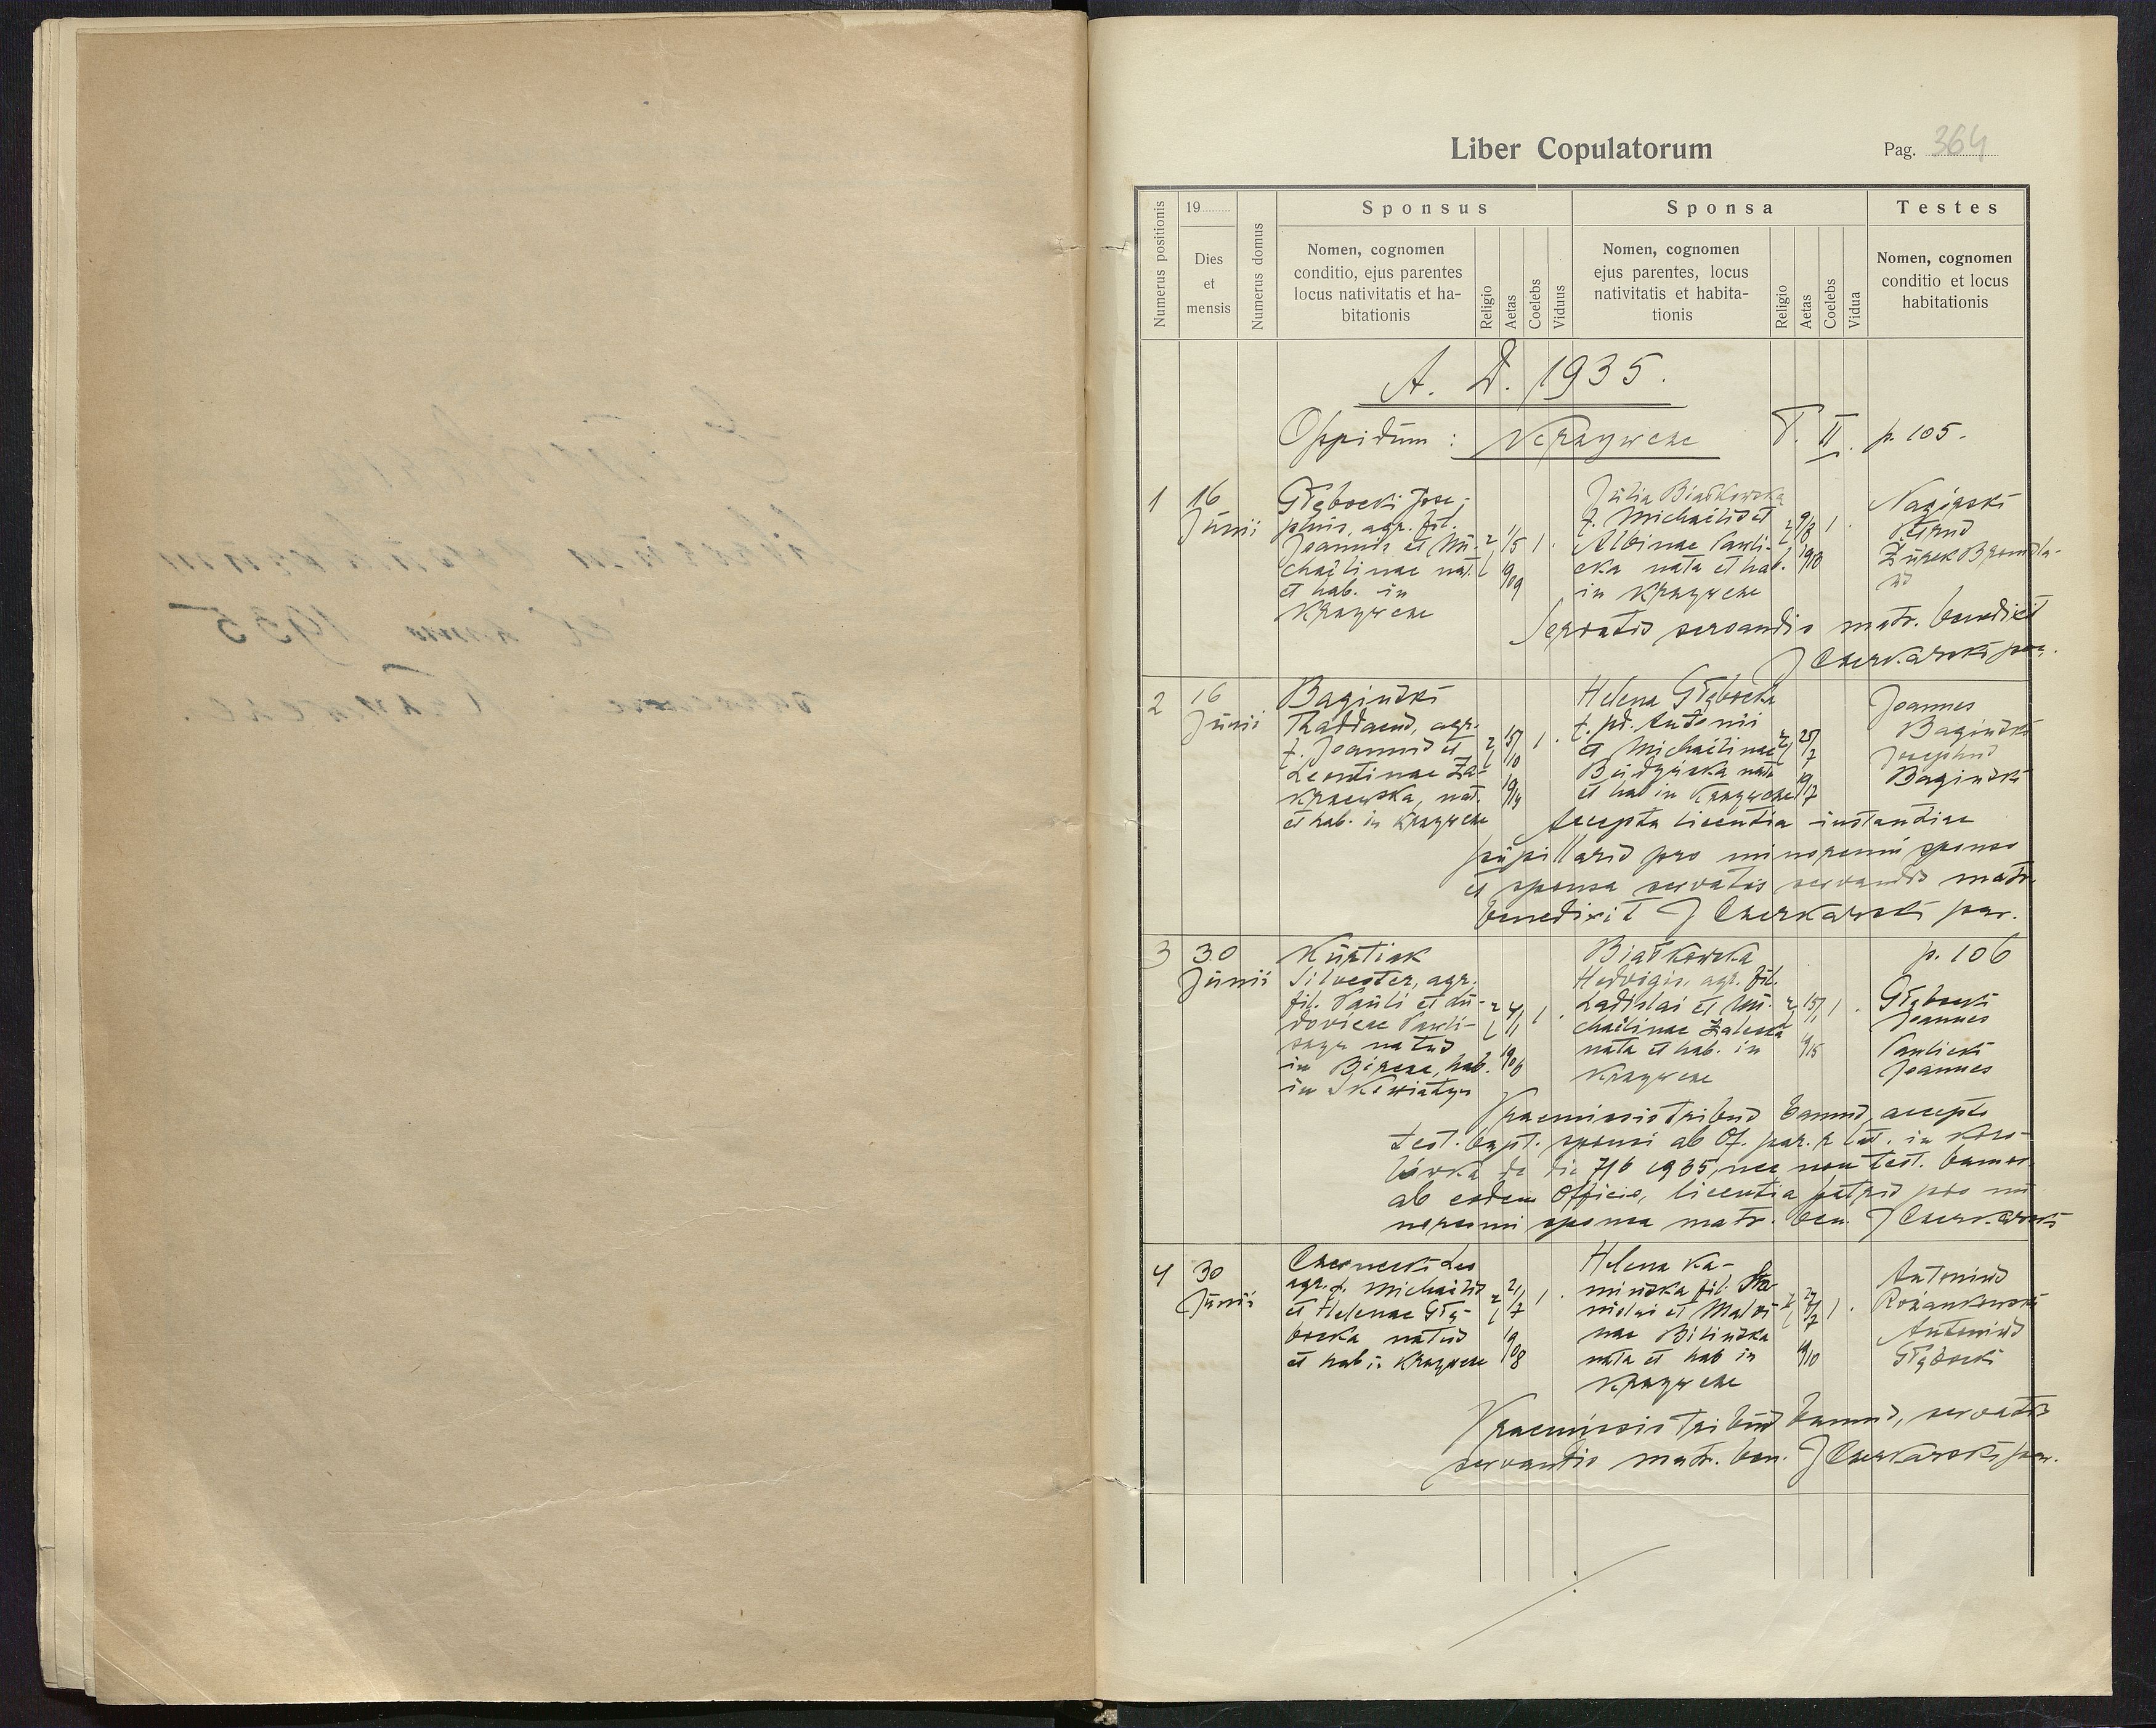 Liber Copulatorum
Pag. 364
Numerus positionis
19
Dies
et
mensis
Numerus domus
Sponsus
Nomen, cognomen
conditio, ejus parentes
locus nativitatis et ha-
bitationis
Religio
Aetas
Coelebs
Viduus
Sponsa
Nomen, cognomen
ejus parentes, locus
nativitatis et habita-
tionis
Religio
Aetas
Coelebs
Vidua
Testes
Nomen, cognomen
conditio et locus
habitationis
A. D. 1935.
Oppidum: Krzywcze T. II. p. 105.
1
16
Junii
Głębocki Jose-
phus, agr. fil.
Joannis et Mi-
chaëlinae nat.
et hab. in
Krzywcze
r l
1/5
19/09
1.
Julia Białkowska
f. Michaëlis et
Albinae Pawli-
cka nata et hab.
in Krzywcze
r l
9/8
19/18
1.
Nagórski
Petrus
Żurek Bronisla-
us
Servatis servandis matr. benedixit
J Czerkawski par.
2
16
Junii
Bagiński
Thaddaeus, agr.
f. Joannis et
Leontinae Za-
krzewska, nat.
et hab. in Krzywcze
r l
15/10
19/14
1.
Helena Głębocka
f. pd. Antonii
et Michaëlinae
nata
et hab in Krzywcze
r l
25/7
19/17
Joannes
Bagiński
Josephus
Bagiński
Accepta licentia instantiae
pupillaris pro minorenni sponso
et sponsa servatis servandis matr.
benedixit J Czerkawski par.
3
30
Junii
Kurtiak
Silvester, agr.
fil. Pauli et Lu-
dovicae Pawli-
natus
in hab.
in Skowiatyn
r l
4/1
19/06
1.
Białkowska
Hedvigis, agr. fil.
Ladislai et Mi-
chaëlinae Zaleska
nata et hab. in
Krzywcze
r l
15/1
19/15
1.
p. 106
Głębocki
Joannes
Pawlicki
Joannes
Praemissis tribus bannis, accepto
test. bapt. sponsi ab Of. par. r lat. in Koro-
lówka de die 7/6 1935, nec non test. bannor.
ab eodem Officio, licentia patris pro mi
norenni sponsa matr. ben. J Czerkawski
4
30
Junii
Czernecki Leo
agr. f. Michaëlis
et Helenae Głę-
bocka natus
et hab in Krzywcze
r l
21/7
19/08
1.
Helena Ka-
mińska fil. Sta-
nislai et Malvi-
nae Bilińska
nata et hab in
Krzywcze
r l
19/10
1.
Antonius
Rożankowski
Antonius
Głębocki
Praemissis tribus bannis, servatis
servandis matr. ben. J Czerkawski par.